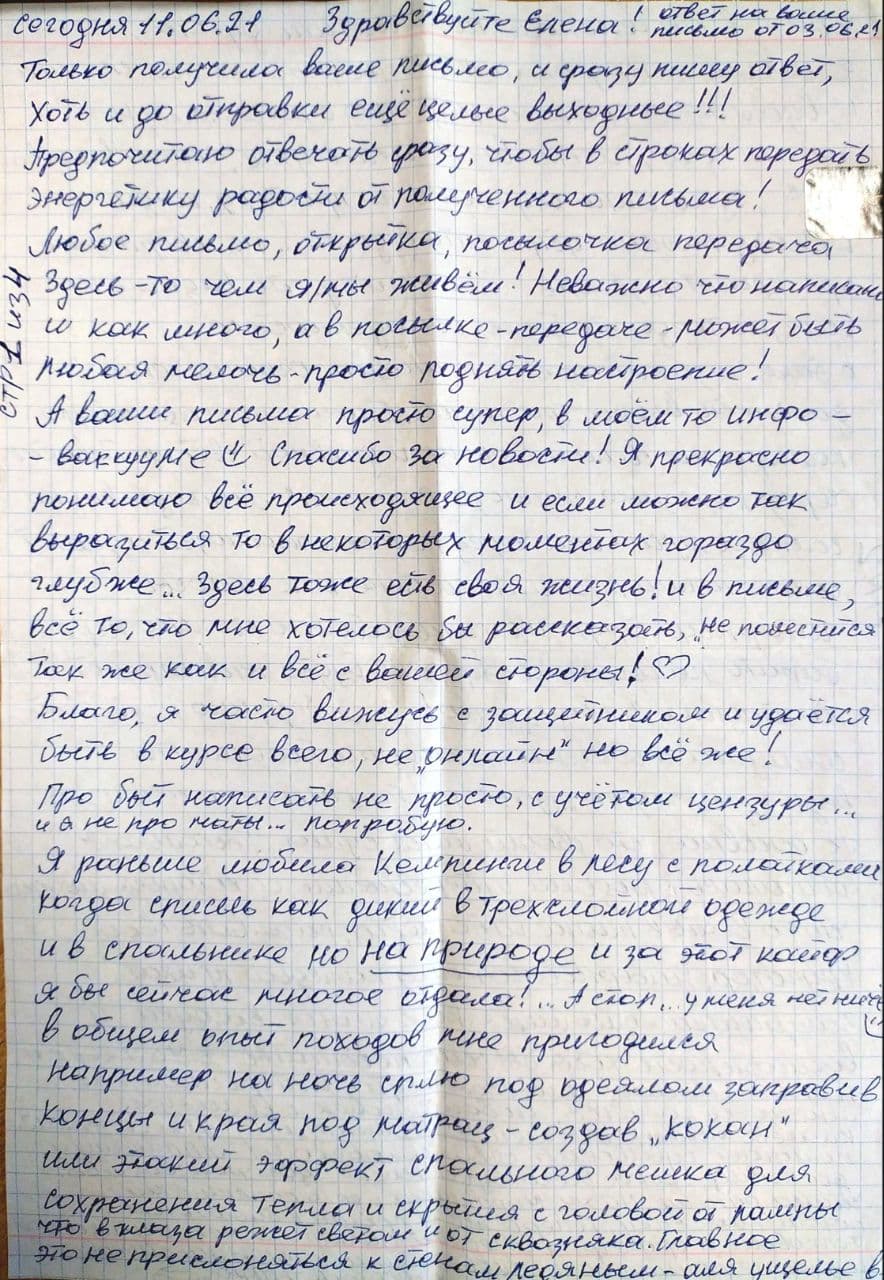 сегодня 11.06.21 Здравствуйте Елена! ответ на ваше
письмо от 03.06.21
Только получила ваше письмо, и сразу пишу ответ,
Хоть и до отправки ещё целые выходные!!!
Предпочитаю отвечать сразу, чтобы в строках передать
энергетику радости от полученного письма!
Любое письмо, открытка, посылочка передача
Здесь - то чем я/мы живём! Неважно что написано
и как много, а в посылке - передаче - может быть
любая мелочь - просто поднять настроение!
А ваши письма просто супер, в моём то инфо -
- ваккууме Спасибо за новости! Я прекрасно
понимаю всё происходящее и если можно так
выразиться то в некоторых моментах гораздо
глубже... Здесь тоже есть своя жизнь! и в письме,
всё то, что мне хотелось бы рассказать, не поместится
Так же как и всё с вашей стороны! ♡
Благо, я часто вижусь с защитником и удаётся
быть в курсе всего, не „онлайн“ но всё же!
Про быт написать не просто, с учётом цензуры...
и я не про маты... попробую.
Я раньше любила Кемпинги в лесу с палатками
когда спишь как дикий в трехслойной одежде
и в спальнике но на природе и за этот кайф
я бы сейчас многое отдала!.. А стоп... у меня нет ничего
в общем опыт походов мне пригодился
например на ночь сплю под одеялом заправив
концы и края под матрац - создав „кокан“
или этакий эффект спального мешка для
сохранения тепла и скрытия с головой от лампы
что в глаза режет светом и от сквозняка. Главное
это не прислоняться к стенам ледяным - аля ущелье в
стр 1 из 4